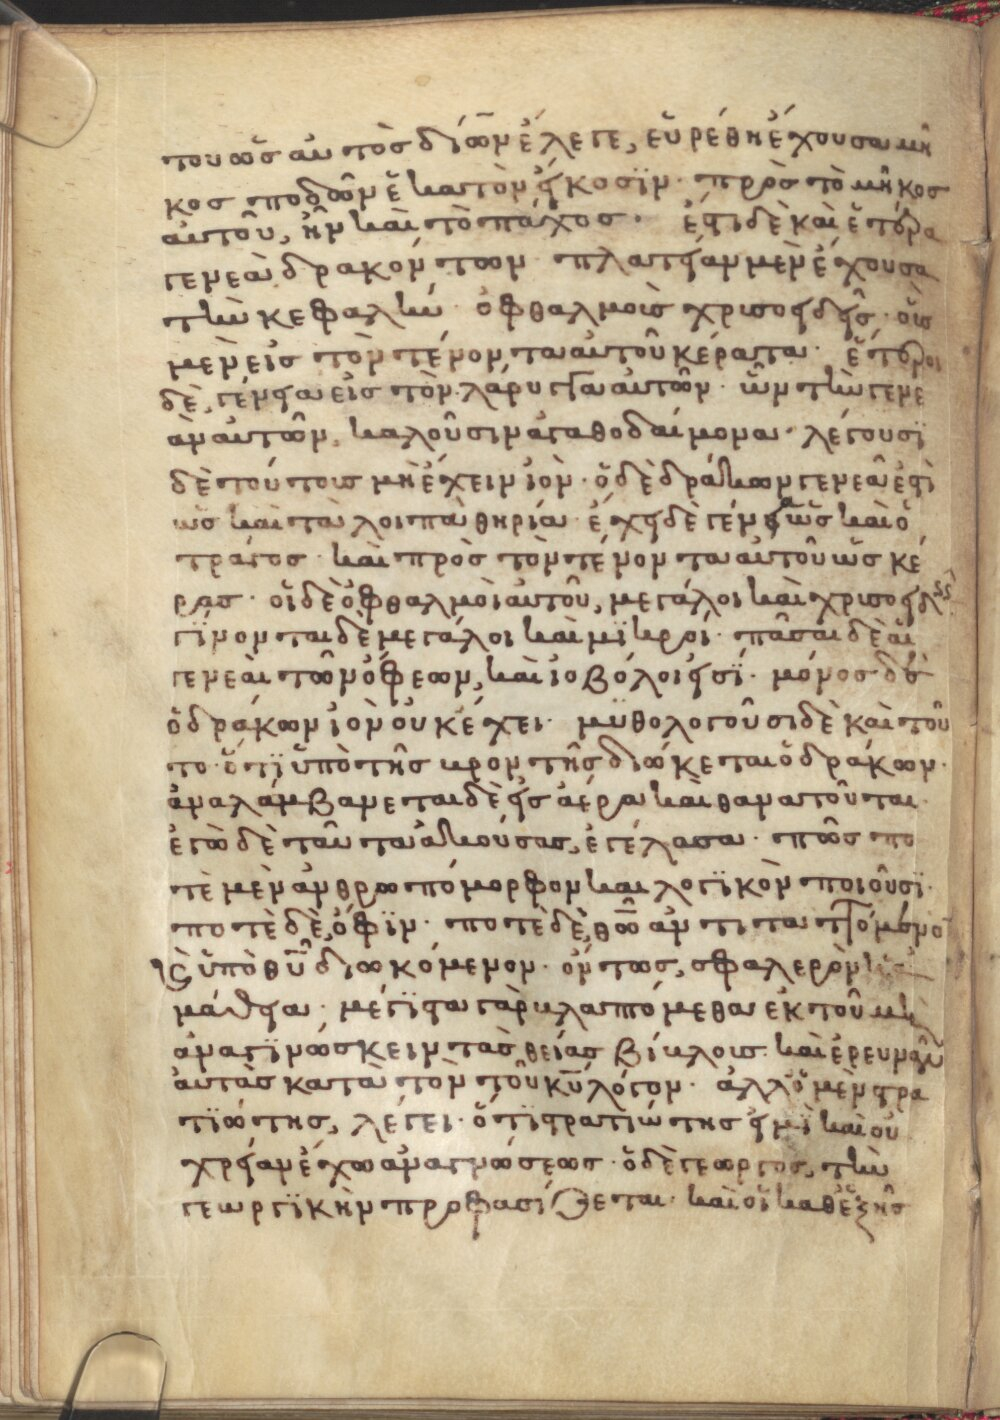 του ὡς αὐτὸς δίων ἔλεγε, εὑρέθη ἔχουσα μῆ
κος ποδῶν ἑκατὸν εἴκοσϊν· πρὸς τὸ μῆκος
αὐτοῦ, ἦν καὶ τὸ πάχος· ἔστι δὲ καὶ ἕτερα
γενεὰ δρακόντων πλατεῖαν μὲν ἔχουσα
τὴν κεφαλὴν ὀφθαλμοὶς χρισοειδεῖς· οὓς
μὲν εἰς τὸν τένοντα αὐτοῦ κέρατα· ἕτεροι
δὲ, γένεια εἰς τὸν λάρυγγα αὐτῶν· ὧν τὴν γενε
ὰν αὐτῶν, καλοῦσιν ἀγαθοδαίμονα· λέγουσϊ
δὲ τούτοις μὴ ἔχειν ἰόν· ὁ δὲ δράκων γενεᾶ ἐστὶ
ὡς καὶ τὰ λοιπὰ θηρία· ἔχει δὲ γένεια ὡς καὶ ὁ
τράγος· καὶ πρὸς τὸν τένοντα αὐτοῦ ὡς κέ
ρας· οἱ δὲ ὀφθαλμοὶ αὐτοῦ, μεγάλοι καὶ χρισοειδεῖς·
γϊνονται δὲ μεγάλοι καὶ μϊκροί· πᾶσαι δὲ αἱ
γενεαὶ τῶν ὄφεων, καὶ ἰοβόλοι εἰσϊ· μόνος δὲ
ὁ δράκων ἰὸν οὐκ ἔχει· μϋθολογοῦσι δὲ καὶ τοῦ
το· ὅτϊ ὑπὸ τῆς βροντῆς διώκεται ὁ δράκων·
ἀναλάμβανεται δὲ εἰς ἀέρα καὶ θανατοῦται·
ἐγὼ δὲ ταῦτα ἀκούσας, ἐγέλασα· πῶς πο
τὲ μὲν ἀνθρωπόμορφον καὶ λογϊκὸν ποιοῦσϊ·
ποτὲ δὲ, ὄφϊν· ποτὲ δὲ, θῶ ἀντιταττόμενο
ϗ ὑπὸ θῦ διωκόμενον· ὄντως, σφαλερὸν
μάθεια· μεγϊστα γὰρ βλαπτόμεθα ἐκ τοῦ μὴ
ἀναγϊνώσκειν τὰς θείας βίβλους· καὶ ἐρευνᾶν
αὐτὰς κατὰ τὸν τοῦ κῦ λόγον· ἀλλ' ὁ μὲν στρα
τϊώτης, λέγει· ὅτϊ στρατιώτης εἰμϊ καὶ οὐ
χρείαν ἔχω ἀναγνώσεως· ὁ δὲ γεωργος, τὴν
γεωργϊκὴν προφασίζεται· καὶ οἱ καθεξῆς